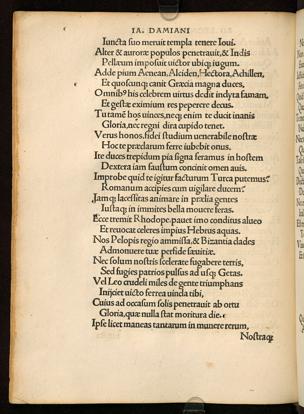 IA. DAMIANI
Iuncta suo meruit templa tenere Ioui.
Alter & auroræ populos penetrauit, & Indis
Pellæum imposuit uictor ubiq; iugum.
Adde pium Aenean, Alciden, Hectora, Achillen,
Et quoscunq; canit Græcia magna duces,
Omnib⁹ his celebrem uirtus dedit indyta famam,
Et gestæ eximium res peperere decus.
Tu tamē hos uinces, neq; enim te ducit inanis
Gloria, nec regni dira cupido tenet.
Verus honos, fidei studium uenerabile nostræ
Hoc te prædarum ferre iubebit onus.
Ite duces trepidum pia signa feramus in hostem
Dextera iam faustum concinit omen auis.
Improbe quid te igitur facturum Turca putemus?
Romanum accipies cum uigilare ducem?
Iamq; lacessitas animare in prælia gentes
Iustaq; in immites bella mouere feras.
Ecce tremit Rhodope, pauet imo conditus alueo
Et reuocat celeres impius Hebrus aquas.
Nos Pelopis regio ammissa, & Bizantia clades
Admonuere tuæ perfide sæuitiæ.
Nec solum nostris scelerate fugabere terris,
Sed fugies patrios pulsus ad usq; Getas.
Vel Leo crudeli miles de gente triumphans
Inijciet uicto ferrea uincla tibi,
Cuius ad occasum solis penetrauit ab ortu
Gloria, quæ nulla stat moritura die.
Ipse licet maneas tantarum in munere rerum,
Nostraq;